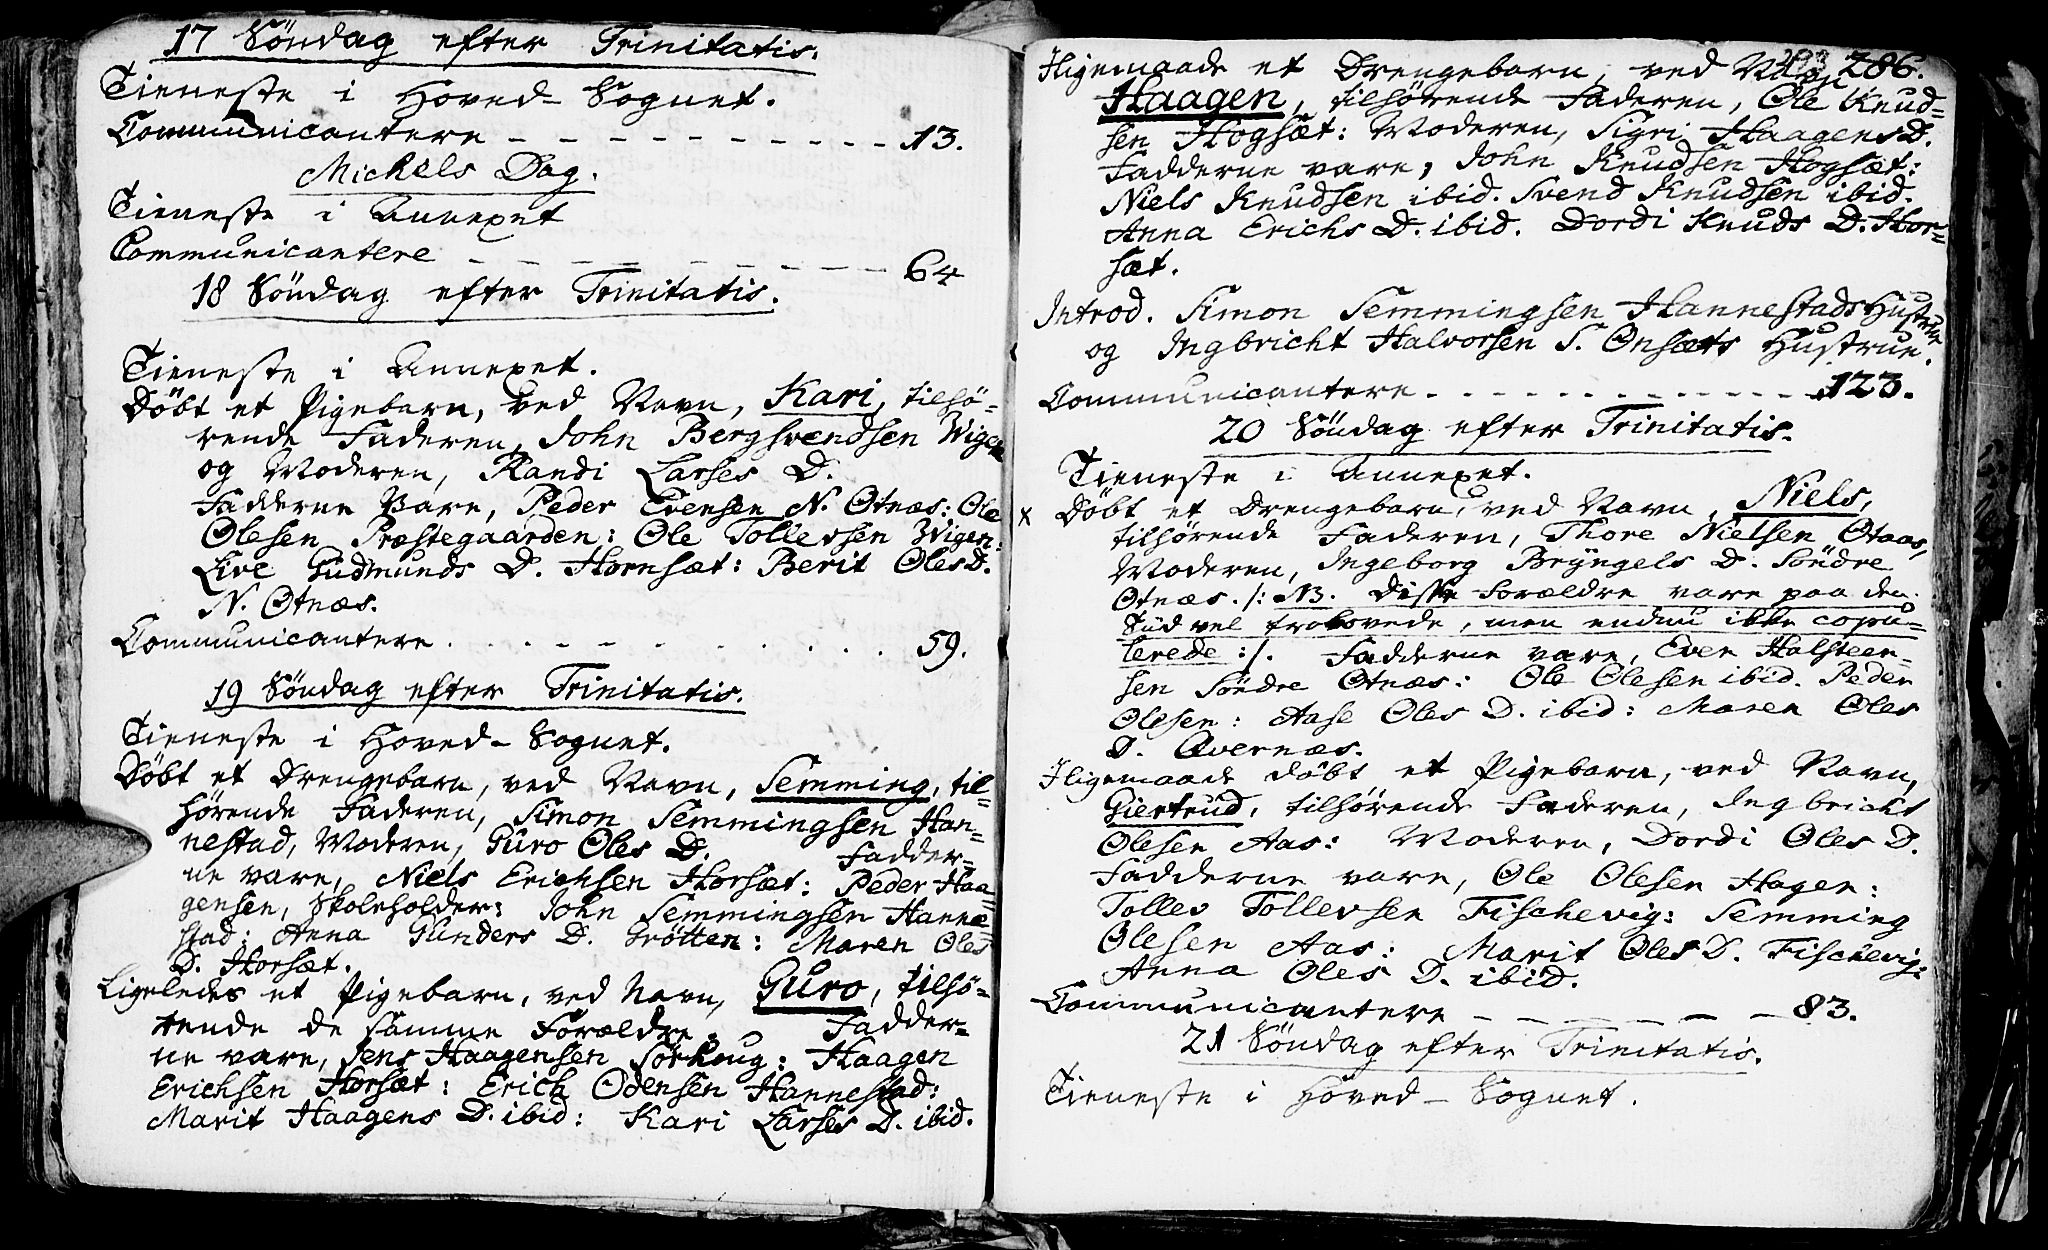 17 Söndag efter Trinitatis.
Tieneste i Hoved-Sognet.
Communicantere - - - - - - - - - - 13.
Michels Dag.
Tieneste i Annexet
Communicantere - - - - - - - - - - 64
18 Söndag efter Trinitatis.
Tieneste i Annexet.
Döbt et Pigebarn, ved Navn, Kari, tilhö-
rende Faderen, John Bergsvendsen Wigen
og Moderen, Randi Larses D.
Fadderne Vare, Peder Evensen N. Otnæs: Ole
Olesen Præstegaarden: Ole Tollevsen Wigen:
Live Gudmunds D. Hornsæt: Berit Oles D.
N. Otnæs.
Communicantere - - - - - - - - - - 59.
19 Söndag efter Trinitatis.
Tieneste i Hoved-Sognet.
Döbt et Drengebarn, ved Navn, Semming, til-
hörende Faderen, Simon Semmingsen Han-
nestad, Moderen, Guro Oles D. Fadder-
ne vare, Niels Erichsen Horsæt: Peder Haa-
gensen, Skoleholder: John Semmingsen Hanne
stad: Anna Gunders D. Grötten: Maren Oles
D. Horsæt.
Ligeledes et Pigebarn, ved Navn, Guro, tilhö-
rende de samme Forældre. Fadder-
ne vare, Jens Haagensen Sörhoug: Haagen
Erichsen Horsæt: Erich Odensen Hannestad:
Marit Haagens D. ibid: Kari Larses D. ibid.
286.
Iligemaade et Drengebarn, ved Navn
Haagen, tilhörende Faderen, Ole Knud-
sen Hogsæt: Moderen, Sigri Haagens D.
Fadderne vare, John Knudsen Hogsæt:
Niels Knudsen ibid. Svend Knudsen ibid.
Anna Erichs D. ibid. Dordi Knuds D. Hor-
sæt.
Introd. Simon Semmingsen Hannestads Hustrue
og Ingbricht Halvorsen S. Onsæts Hustrue.
Communicantere - - - - - - - - - - 123.
20 Söndag efter Trinitatis.
Tieneste i Annexet.
x Döbt et Drengebarn, ved Navn, Niels,
tilhörende Faderen, Thore Nielsen Otaas,
Moderen, Ingeborg Bryngels D. Söndre
Otnæs. /: NB. Disse Forældre vare paa den
Tiid vel trolovede, men endnu ikke copu-
lerede :/. Fadderne vare, Even Halsteen-
sen Söndre Otnæs: Ole Olesen ibid. Peder
Olesen: Aase Oles D. ibid: Maren Oles
D. Qvernæs.
Iligemaade döbt et Pigebarn, ved Navn,
Giertrud, tilhörende Faderen, Ingbricht
Olesen Aas: Moderen, Dordi Oles D.
Fadderne vare, Ole Olesen Hagen:
Tollev Tollevsen Fischevig: Semming
Olesen Aas: Marit Oles D. Fischevig:
Anna Oles D. ibid.
Communicantere - - - - - - 83.
21 Söndag efter Trinitatis.
Tieneste i Hoved-Sognet.